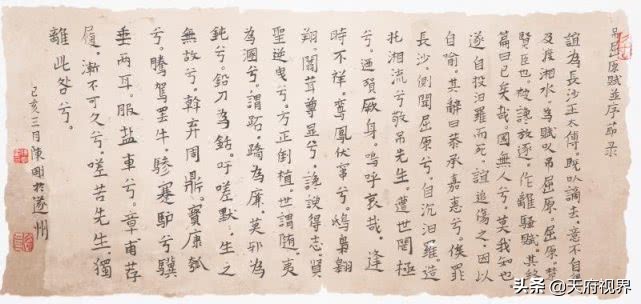 吊屈原賦並序節录
誼為長沙王太傅。既以謫去。意不自
及度湘水。為賦以吊屈原。屈原。楚
賢臣也。被讒放逐。作離騷賦。其終
篇曰已矣哉。國無人兮。莫我知也
遂自投汨羅而死。誼追傷之。因以
自喻。其辭曰恭承嘉惠兮。俟罪
長沙。側聞屈原兮。自沉汨羅。造
托湘流兮敬吊先生。遭世罔極
兮。迺殞厥身。嗚呼哀哉。逢
時不祥。鸞鳳伏竄兮。鴟梟翱
翔。闒茸尊显兮。讒諛得志。賢
聖逆曳兮。方正倒植。世謂随。夷
為溷兮。謂跖。蹻為廉。莫邪為
鈍兮。鉛刀為銛。吁嗟默。生之
無故兮。斡弃周鼎。寶康瓠
兮。騰駕罢牛。驂蹇驴兮。驥
垂两耳。服盐車兮。章甫荐
屨。漸不可久兮。嗟苦先生。獨
離此咎兮。
己亥三月陳剛於遂州
头条 @天府视界